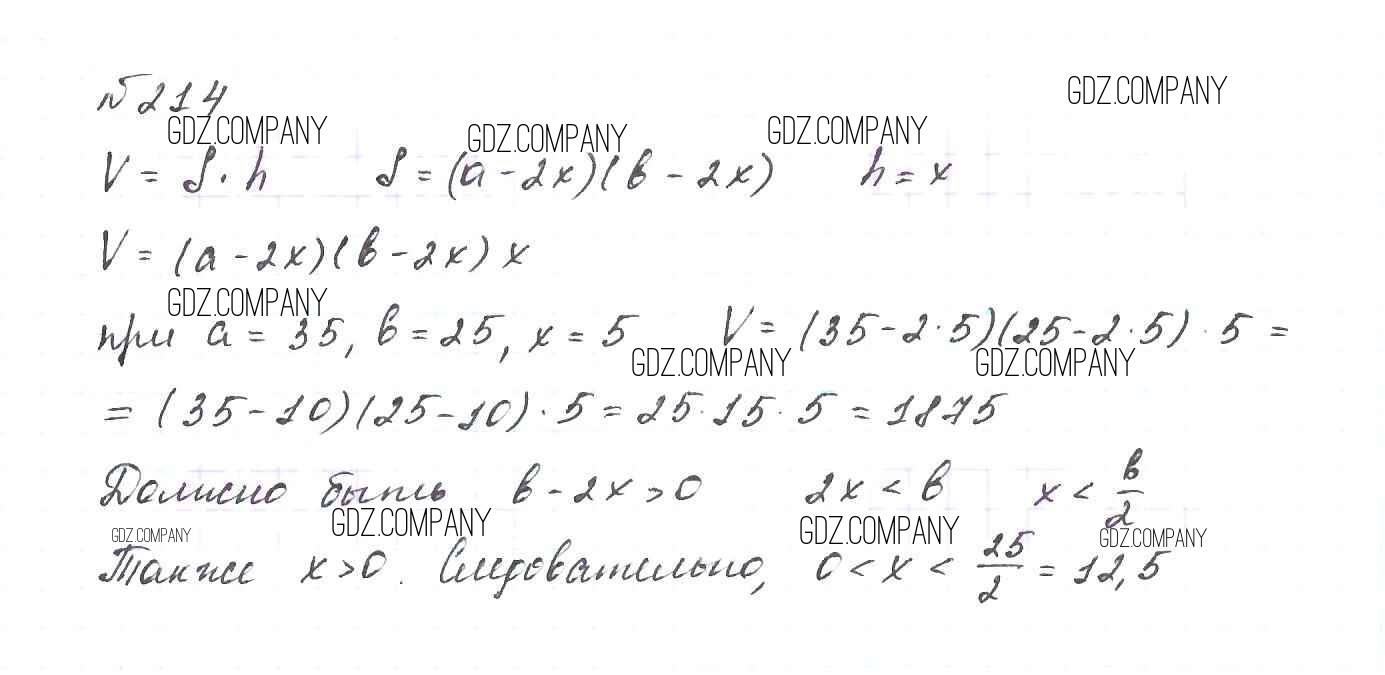 № 214
GDZ.COMPANY
GDZ.COMPANY GDZ.COMPANY GDZ.COMPANY
V = S · h S = (a - 2x)(b - 2x) h = x
V = (a - 2x)(b - 2x) x
GDZ.COMPANY
при a = 35, b = 25, x = 5 V = (35 - 2 · 5)(25 - 2 · 5) · 5 =
GDZ.COMPANY GDZ.COMPANY
= (35 - 10)(25 - 10) · 5 = 25 · 15 · 5 = 1875
Должно быть b - 2x > 0 2x < b x < b/2
GDZ.COMPANY GDZ.COMPANY GDZ.COMPANY GDZ.COMPANY
Также x > 0. Следовательно, 0 < x < 25/2 = 12,5